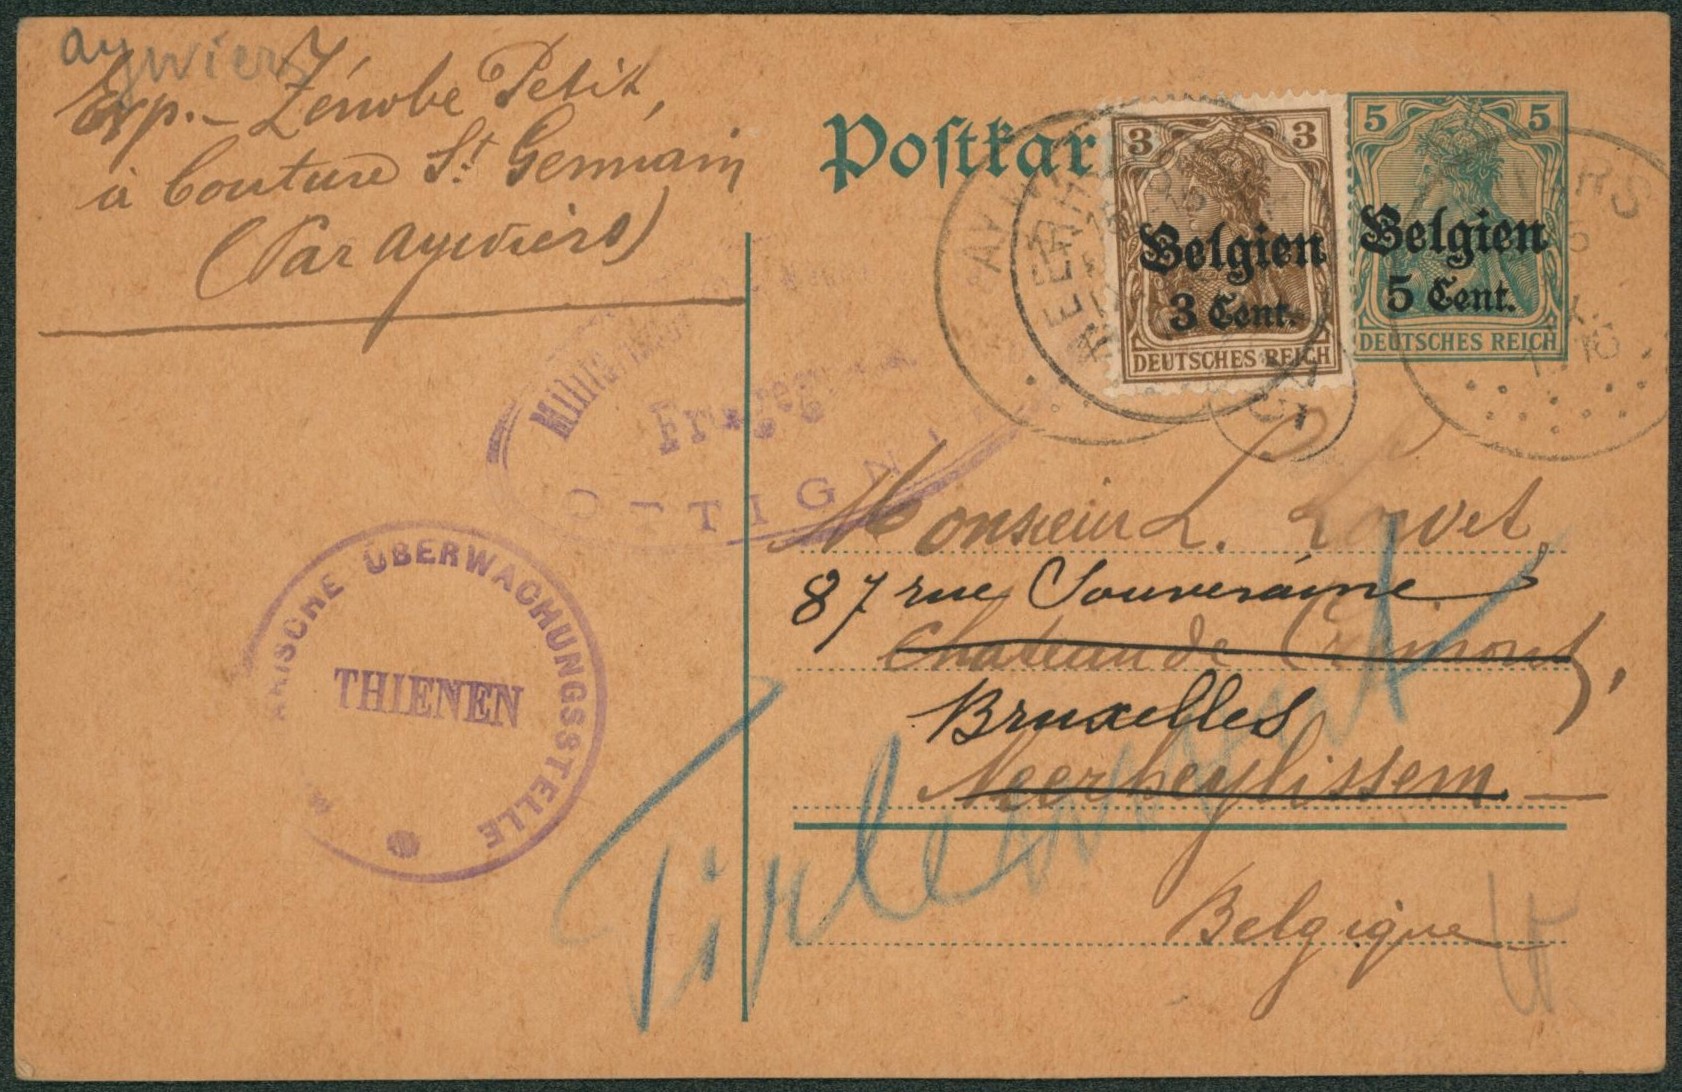 aywiers
Exp. - Zénobe Petit,
à Couture St Germain
(Par Aywiers)
Postkar
3 3
Belgien
3 Cent.
DEUTSCHES REICH
5 5
Belgien
5 Cent.
DEUTSCHES REICH
OTTIGN
ÜBERWACHUNGSSTELLE
THIENEN
Monsieur L.
87 rue Souveraine
Chateau de
Bruxelles
Neerheylissem
Tirlemont
Belgique